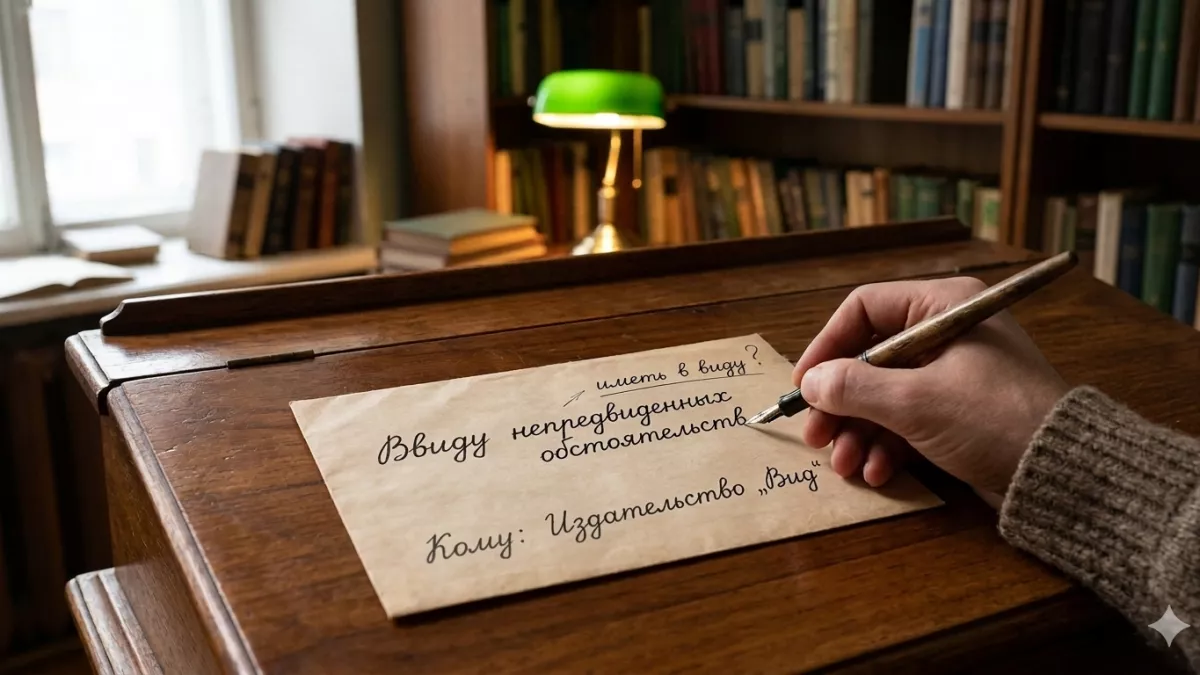 иметь в виду?
Ввиду непредвиденных
обстоятельств
Кому: Издательство „Вид“